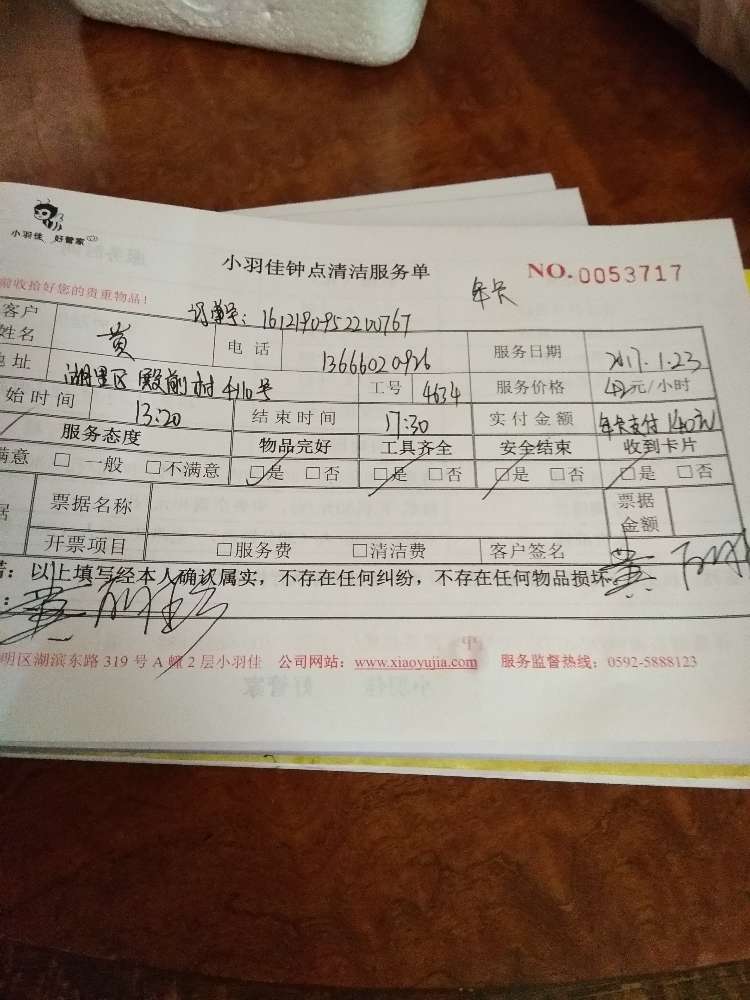 小羽佳 好管家
小羽佳钟点清洁服务单
NO.0053717
年卡
前收拾好您的贵重物品！
订单号：1612190952200767
客户姓名 黄 电话 13666020926 服务日期 2017.1.23
地址 湖里区殿前村4116号 工号 4634 服务价格 42元/小时
始时间 13:20 结束时间 17:30 实付金额 年卡支付140元
服务态度 物品完好 工具齐全 安全结束 收到卡片
满意 □一般 □不满意 □是 □否 □是 □否 □是 □否 □是 □否
据 票据名称 票据金额
开票项目 □服务费 □清洁费 客户签名 黄
：以上填写经本人确认属实，不存在任何纠纷，不存在任何物品损坏。
： 黄
明区湖滨东路 319 号 A 幢 2 层小羽佳 公司网站：www.xiaoyujia.com 服务监督热线：0592-5888123